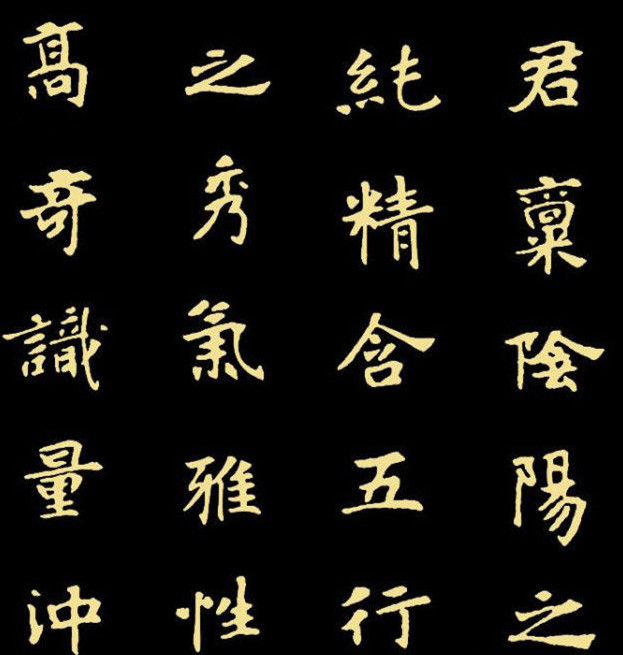 君稟陰陽之
純精含五行
之秀氣雅性
髙奇識量沖